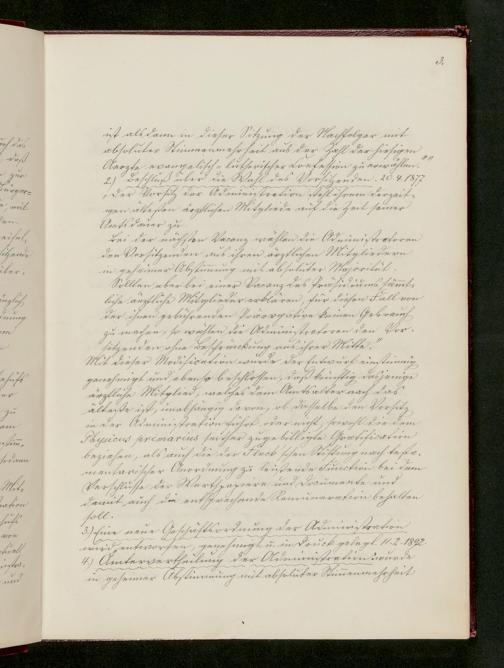 3.
ist alsdann in dieser Sitzung der Nachfolger mit
absoluter Stimmenmehrheit aus der Zahl der hiesigen
Aerzte evangelisch-lutherischer Confession zu erwählen."
2.) Beschluß über die Wahl des Vorsitzenden. 20.4.1877
"Der Vorsitz der Administration steht ihrem derzeit-
igen ältesten ärztlichen Mitgliede auf die Zeit seiner
Amtsdauer zu.
Bei der nächsten Vacanz wählen die Administratoren
den Vorsitzenden aus ihren ärztlichen Mitgliedern
in geheimer Abstimmung mit absoluter Majorität.
Sollten aber bei einer Vacanz des Präsidiums sämt-
liche ärztliche Mitglieder erklären, für diesen Fall von
der ihnen gebührenden Praerogative keinen Gebrauch
zu machen, so wählen die Administratoren den Vor-
sitzenden ohne Beschränkung aus ihrer Mitte."
Mit dieser Modification wurde der Entwurf einstimmig
genehmigt und ebenso beschlossen, daß künftig dasjenige
ärztliche Mitglied, welches dem Amtsalter nach das
älteste ist, unabhängig davon, ob dasselbe den Vorsitz
in der Administration führt oder nicht, sowohl die dem
Physicus primarius seither zugebilligte Gratification
beziehen, als auch die der schen Stiftung nach testa-
mentarischer Anordnung zu leistende Function bei dem
Verschlusse der Werthpapiere und Documente und
damit auch die entsprechende Remuneration behalten
soll.
3.) Eine neue Geschäftsordnung der Administration
wird entworfen, genehmigt u. in Druck gelegt 11.2.1892
4.) Ämtervertheilung der Administration wurde
in geheimer Abstimmung mit absoluter Stimmenmehrheit